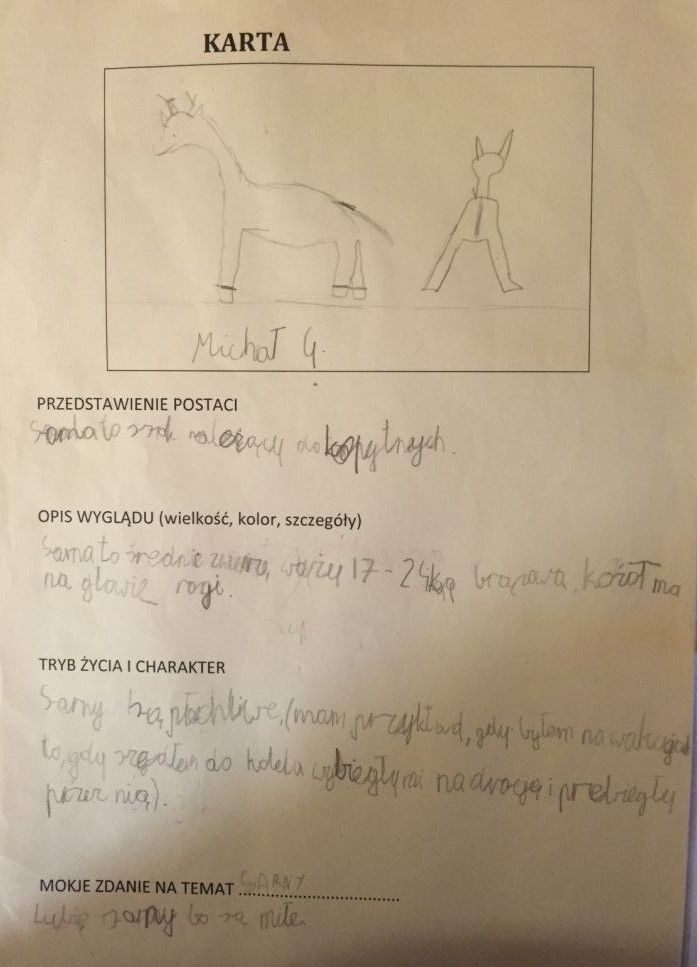 KARTA
Michał G.
PRZEDSTAWIENIE POSTACI
Sarna to ssak należący do kopytnych.
OPIS WYGLĄDU (wielkość, kolor, szczegóły)
Sarna to średnie zwierzę, waży 17-24kg brązowa, kozioł ma
na głowie rogi.
TRYB ŻYCIA I CHARAKTER
Sarny są płochliwe, (mam przykład, gdy byłem na wakacjach
to, gdy szedłem do hotelu wybiegły mi na drogę i przebiegły
przez nią).
MOKJE ZDANIE NA TEMAT SARNY
Lubię sarny bo są miłe.